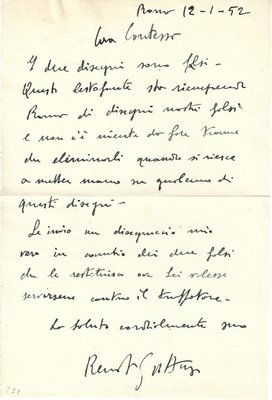 Roma 12-1-52
Cara Contessa
I due disegni sono falsi -
Questo lestofante sta riempiendo
Roma di disegni nostri falsi
e non c'è niente da fare tranne
che eliminarli quando si riesce
a mettere mano su qualcuno di
questi disegni -
Le invio un disegnuccio mio
vero in cambio dei due falsi
che le restituisco ove Lei volesse
servirsene contro il truffatore -
La saluto cordialmente suo
Renato Guttuso
252